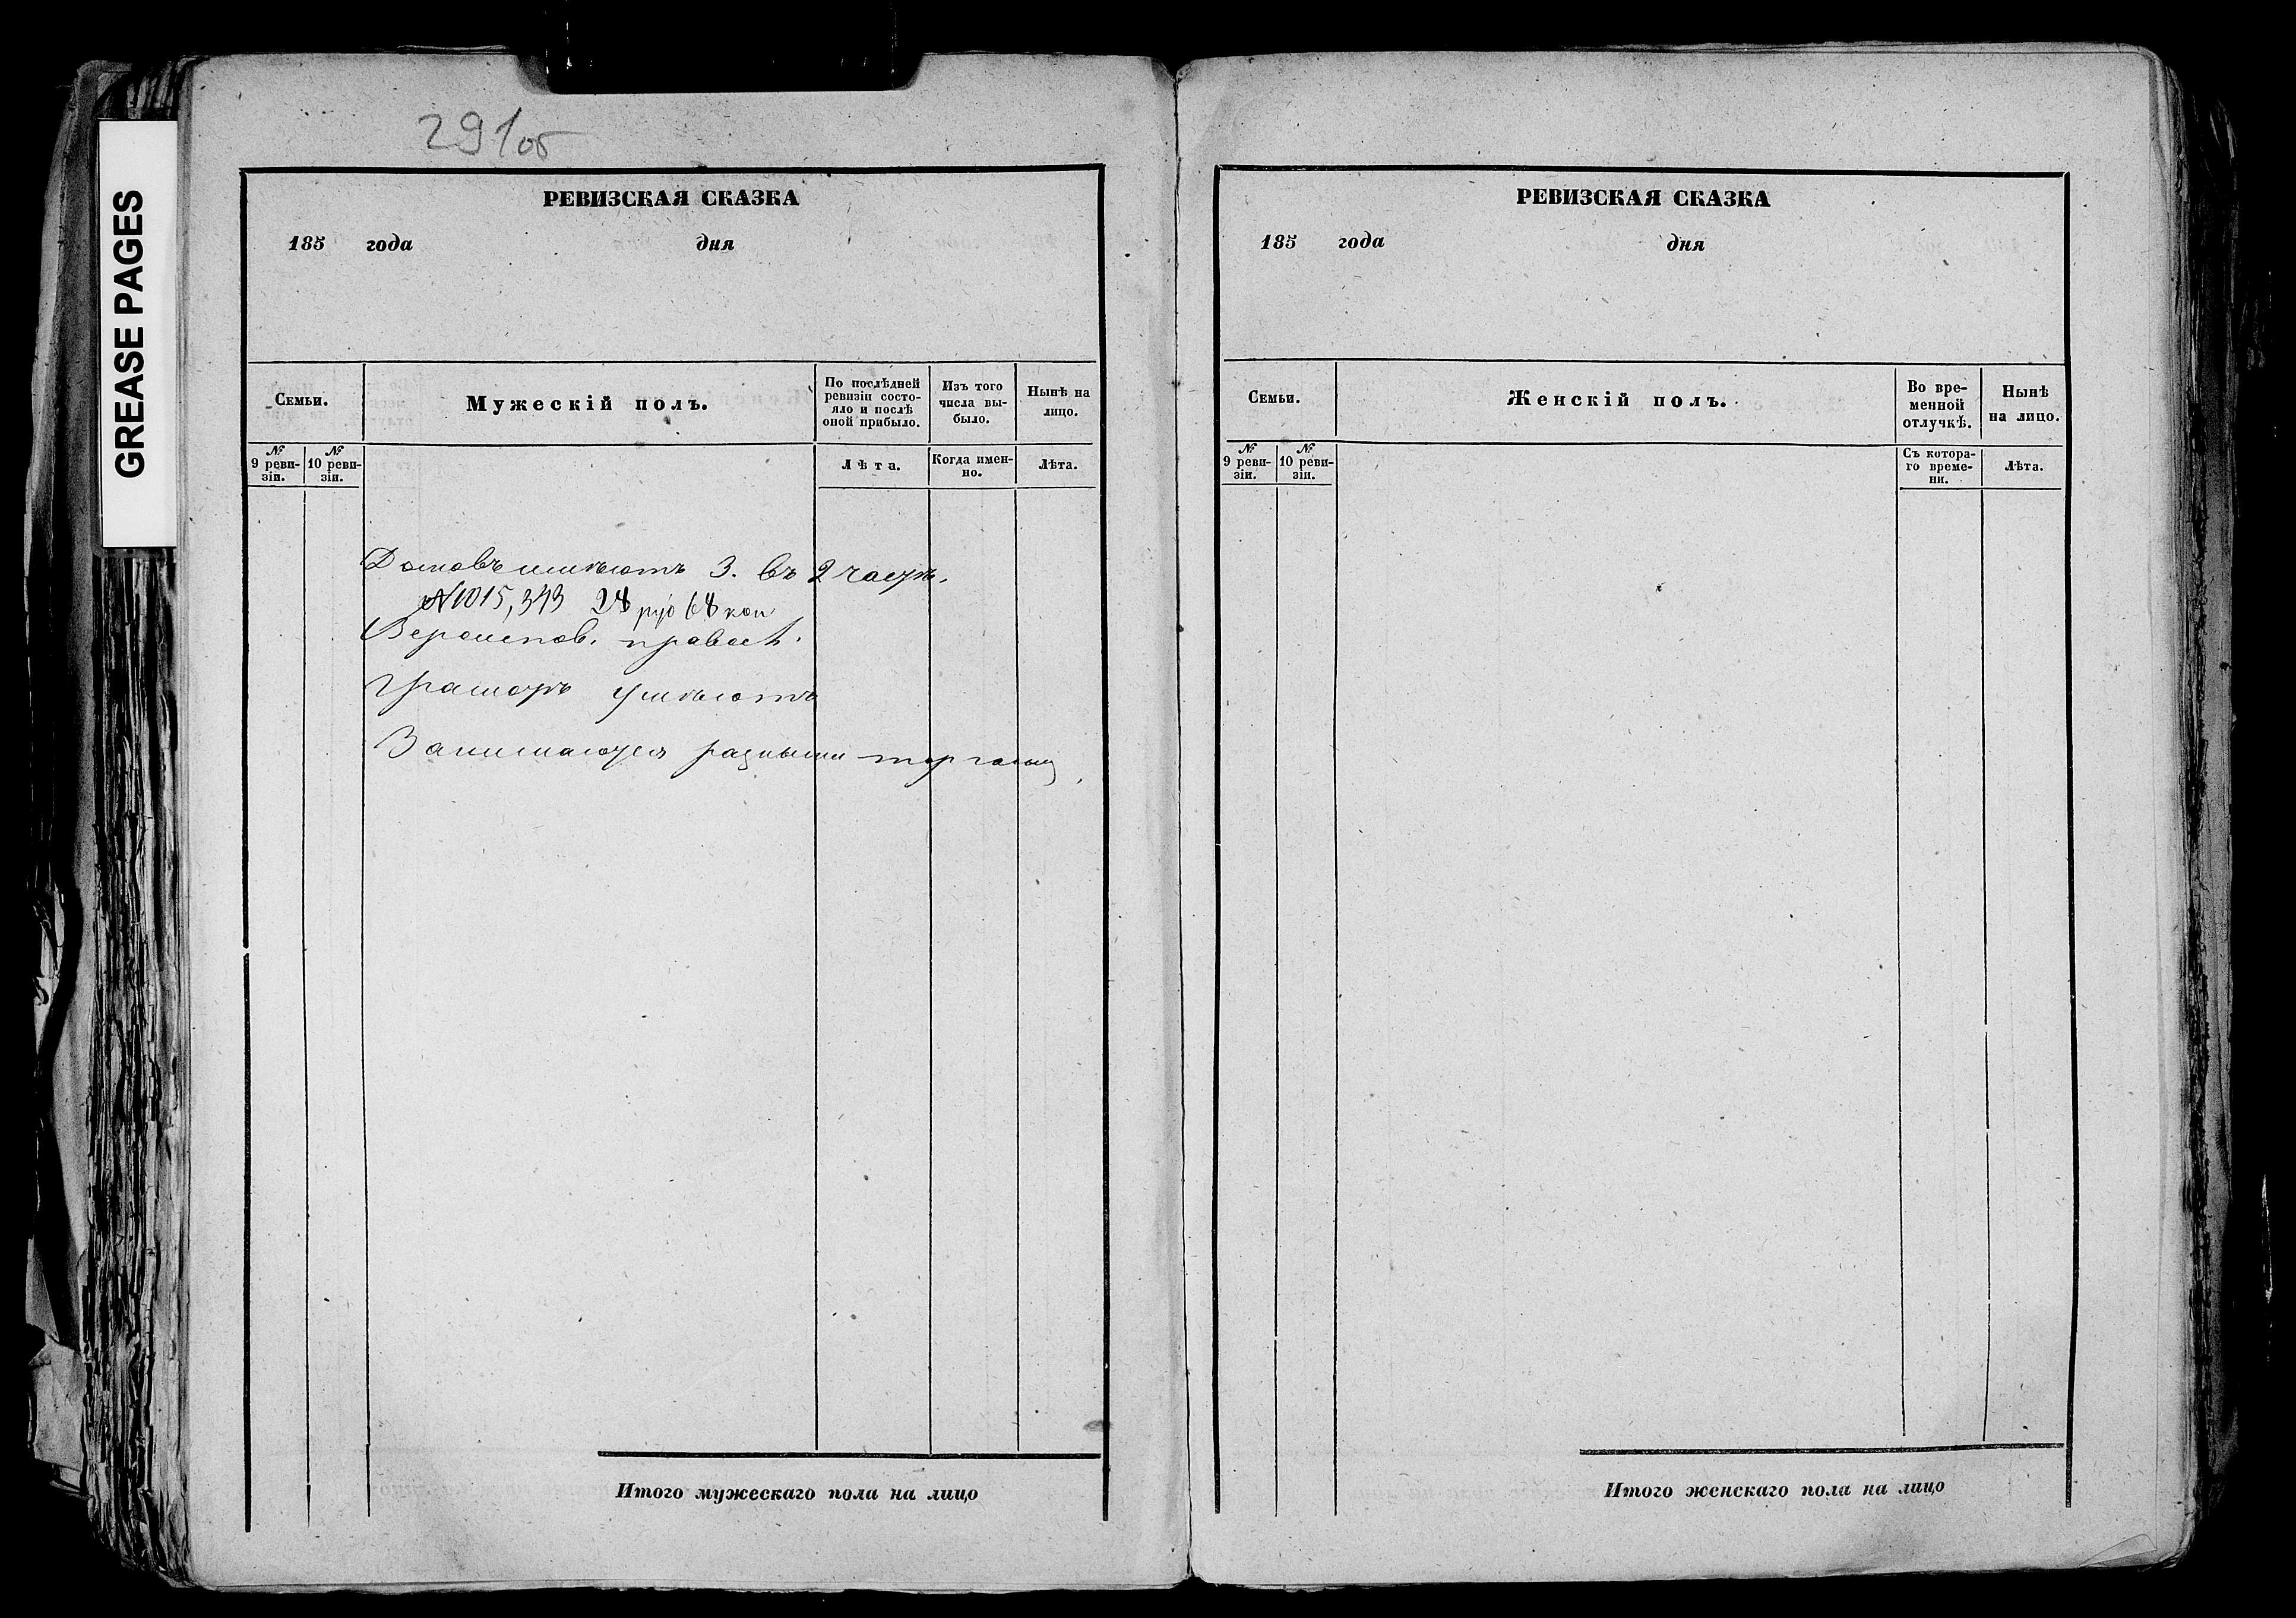 GREASE PAGES
291об
РЕВИЗСКАЯ СКАЗКА
185 года дня
Семьи.
Мужескій полъ.
По послѣдней ревизіи состо-
яло и послѣ
оной прибыло.
Изъ того
числа вы-
было.
Нынѣ на
лицо.
№
9 реви-
зіи.
№
10 реви-
зіи.
Лѣта.
Когда имен-
но.
Лѣта.
Домовъ имѣютъ 3. въ 2 части.
№ 1015, 343 28 руб 68 коп
Вероиспов. правосл.
Грамотѣ умѣютъ
Занимаются разными торгами
Итого мужескаго пола на лицо
РЕВИЗСКАЯ СКАЗКА
185 года дня
Семьи.
Женскій полъ.
Во вре-
менной
отлучкѣ.
Нынѣ
на лицо.
№
9 реви-
зіи.
№
10 реви-
зіи.
Съ котора-
го време-
ни.
Лѣта.
Итого женскаго пола на лицо